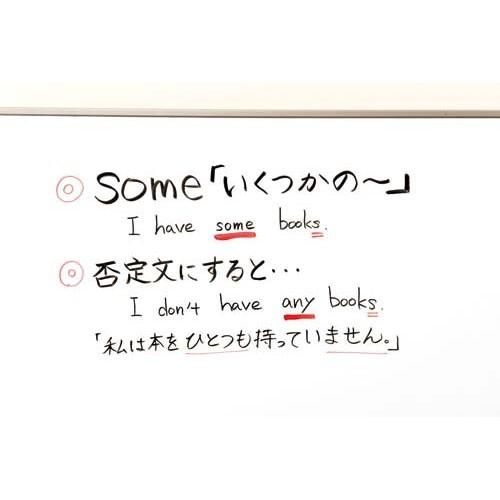 ◎ some「いくつかの〜」
I have some books.
◎ 否定文にすると・・・
I don't have any books.
「私は本をひとつも持っていません。」